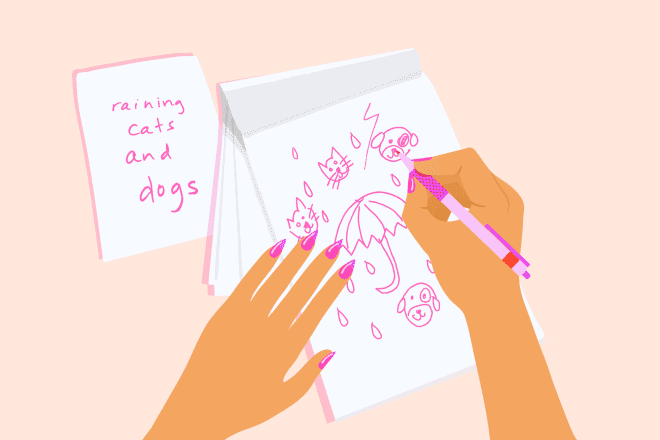 raining
cats
and
dogs